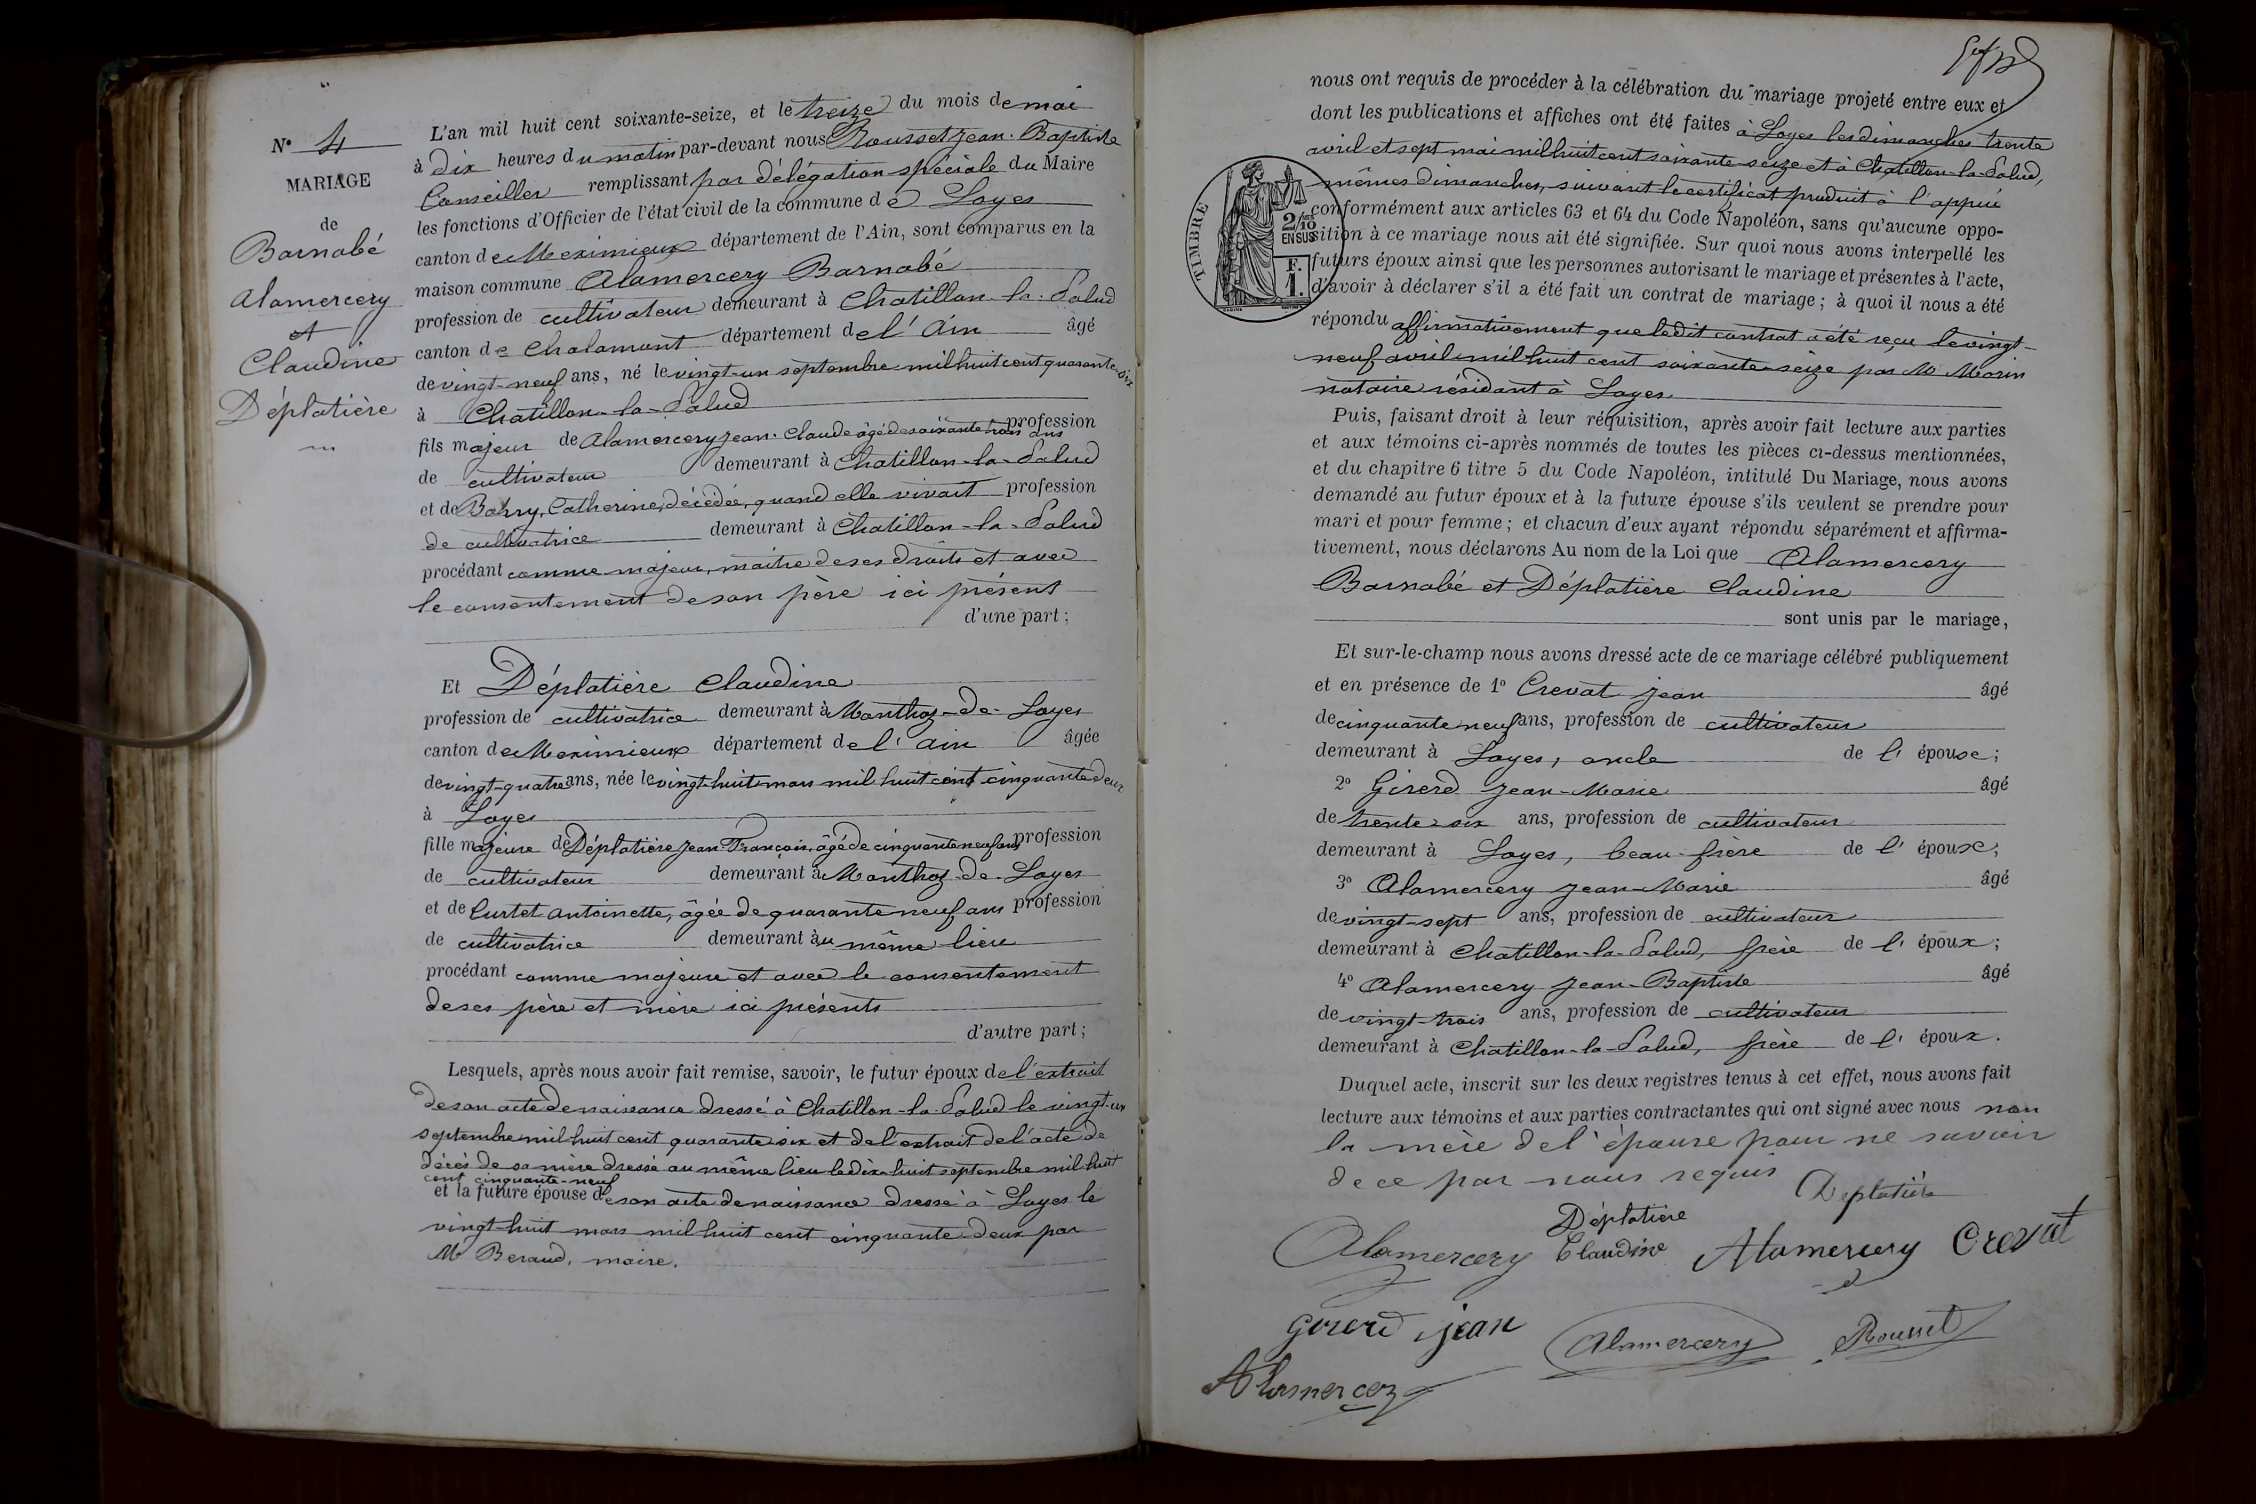 N° 4
MARIAGE
de
Barnabé
Alamercery
et
Claudine
Déplatière
L'an mil huit cent soixante-seize, et le treize du mois de mai
à dix heures du matin par-devant nous Rousset Jean-Baptiste
Conseiller remplissant par délégation spéciale du Maire
les fonctions d'Officier de l'état civil de la commune de Loyes
canton de Meximieux département de l'Ain, sont comparus en la
maison commune Alamercery Barnabé
profession de cultivateur demeurant à Chatillon-la-Palud
canton de Chalamont département de l'Ain âgé
de vingt-neuf ans, né le vingt-un septembre mil huit cent quarante six
à Chatillon-la-Palud
fils majeur de Alamercery Jean-Claude âgé de soixante trois ans profession
de cultivateur demeurant à Chatillon-la-Palud
et de Barry, Catherine, décédée, quand elle vivait profession
de cultivatrice demeurant à Chatillon-la-Palud
procédant comme majeur, maître de ses droits et avec
le consentement de son père ici présent
d'une part;
Et Déplatière Claudine
profession de cultivatrice demeurant à Monthoz-de-Loyes
canton de Meximieux département de l'Ain âgée
de vingt-quatre ans, née le vingt-huit mars mil huit cent cinquante deux
à Loyes
fille majeure de Déplatière Jean François, âgé de cinquante neuf ans profession
de cultivateur demeurant à Monthoz-de-Loyes
et de Curtet Antoinette, âgée de quarante neuf ans profession
de cultivatrice demeurant au même lieu
procédant comme majeure et avec le consentement
de ses père et mère ici présents
d'autre part;
Lesquels, après nous avoir fait remise, savoir, le futur époux de l'extrait
de son acte de naissance dressé à Chatillon-la-Palud le vingt-un
septembre mil huit cent quarante six et de l'extrait de l'acte de
décès de sa mère dressé au même lieu le dix-huit septembre mil huit
cent cinquante-neuf
et la future épouse de son acte de naissance dressé à Loyes le
vingt-huit mars mil huit cent cinquante deux par
Mr Beraud, maire.
nous ont requis de procéder à la célébration du mariage projeté entre eux et
dont les publications et affiches ont été faites à Loyes les dimanches trente
avril et sept mai mil huit cent soixante-seize et à Chatillon-la-Palud,
mêmes dimanches, suivant le certificat produit à l'appui
TIMBRE
2/10
EN SUS
F.
1.
conformément aux articles 63 et 64 du Code Napoléon, sans qu'aucune oppo-
sition à ce mariage nous ait été signifiée. Sur quoi nous avons interpellé les
futurs époux ainsi que les personnes autorisant le mariage et présentes à l'acte,
d'avoir à déclarer s'il a été fait un contrat de mariage; à quoi il nous a été
répondu affirmativement que ledit contrat a été reçu le vingt-
neuf avril mil huit cent soixante-seize par Me Morin
notaire résidant à Loyes
Puis, faisant droit à leur réquisition, après avoir fait lecture aux parties
et aux témoins ci-après nommés de toutes les pièces ci-dessus mentionnées,
et du chapitre 6 titre 5 du Code Napoléon, intitulé Du Mariage, nous avons
demandé au futur époux et à la future épouse s'ils veulent se prendre pour
mari et pour femme; et chacun d'eux ayant répondu séparément et affirma-
tivement, nous déclarons Au nom de la Loi que Alamercery
Barnabé et Déplatière Claudine
sont unis par le mariage,
Et sur-le-champ nous avons dressé acte de ce mariage célébré publiquement
et en présence de 1° Crevat Jean âgé
de cinquante neuf ans, profession de cultivateur
demeurant à Loyes, oncle de l'épouse;
2° Girerd Jean-Marie âgé
de trente-six ans, profession de cultivateur
demeurant à Loyes, beau-frère de l'époux;
3° Alamercery Jean-Marie âgé
de vingt-sept ans, profession de cultivateur
demeurant à Chatillon-la-Palud, frère de l'époux;
4° Alamercery Jean-Baptiste âgé
de vingt-trois ans, profession de cultivateur
demeurant à Chatillon-la-Palud, frère de l'époux.
Duquel acte, inscrit sur les deux registres tenus à cet effet, nous avons fait
lecture aux témoins et aux parties contractantes qui ont signé avec nous non
la mère de l'épouse pour ne savoir
de ce par nous requis
Deplatière
Déplatière
Claudine
Alamercery
Alamercery
Crevat
Girerd jean
Alamercery
Rousset
Alamercery